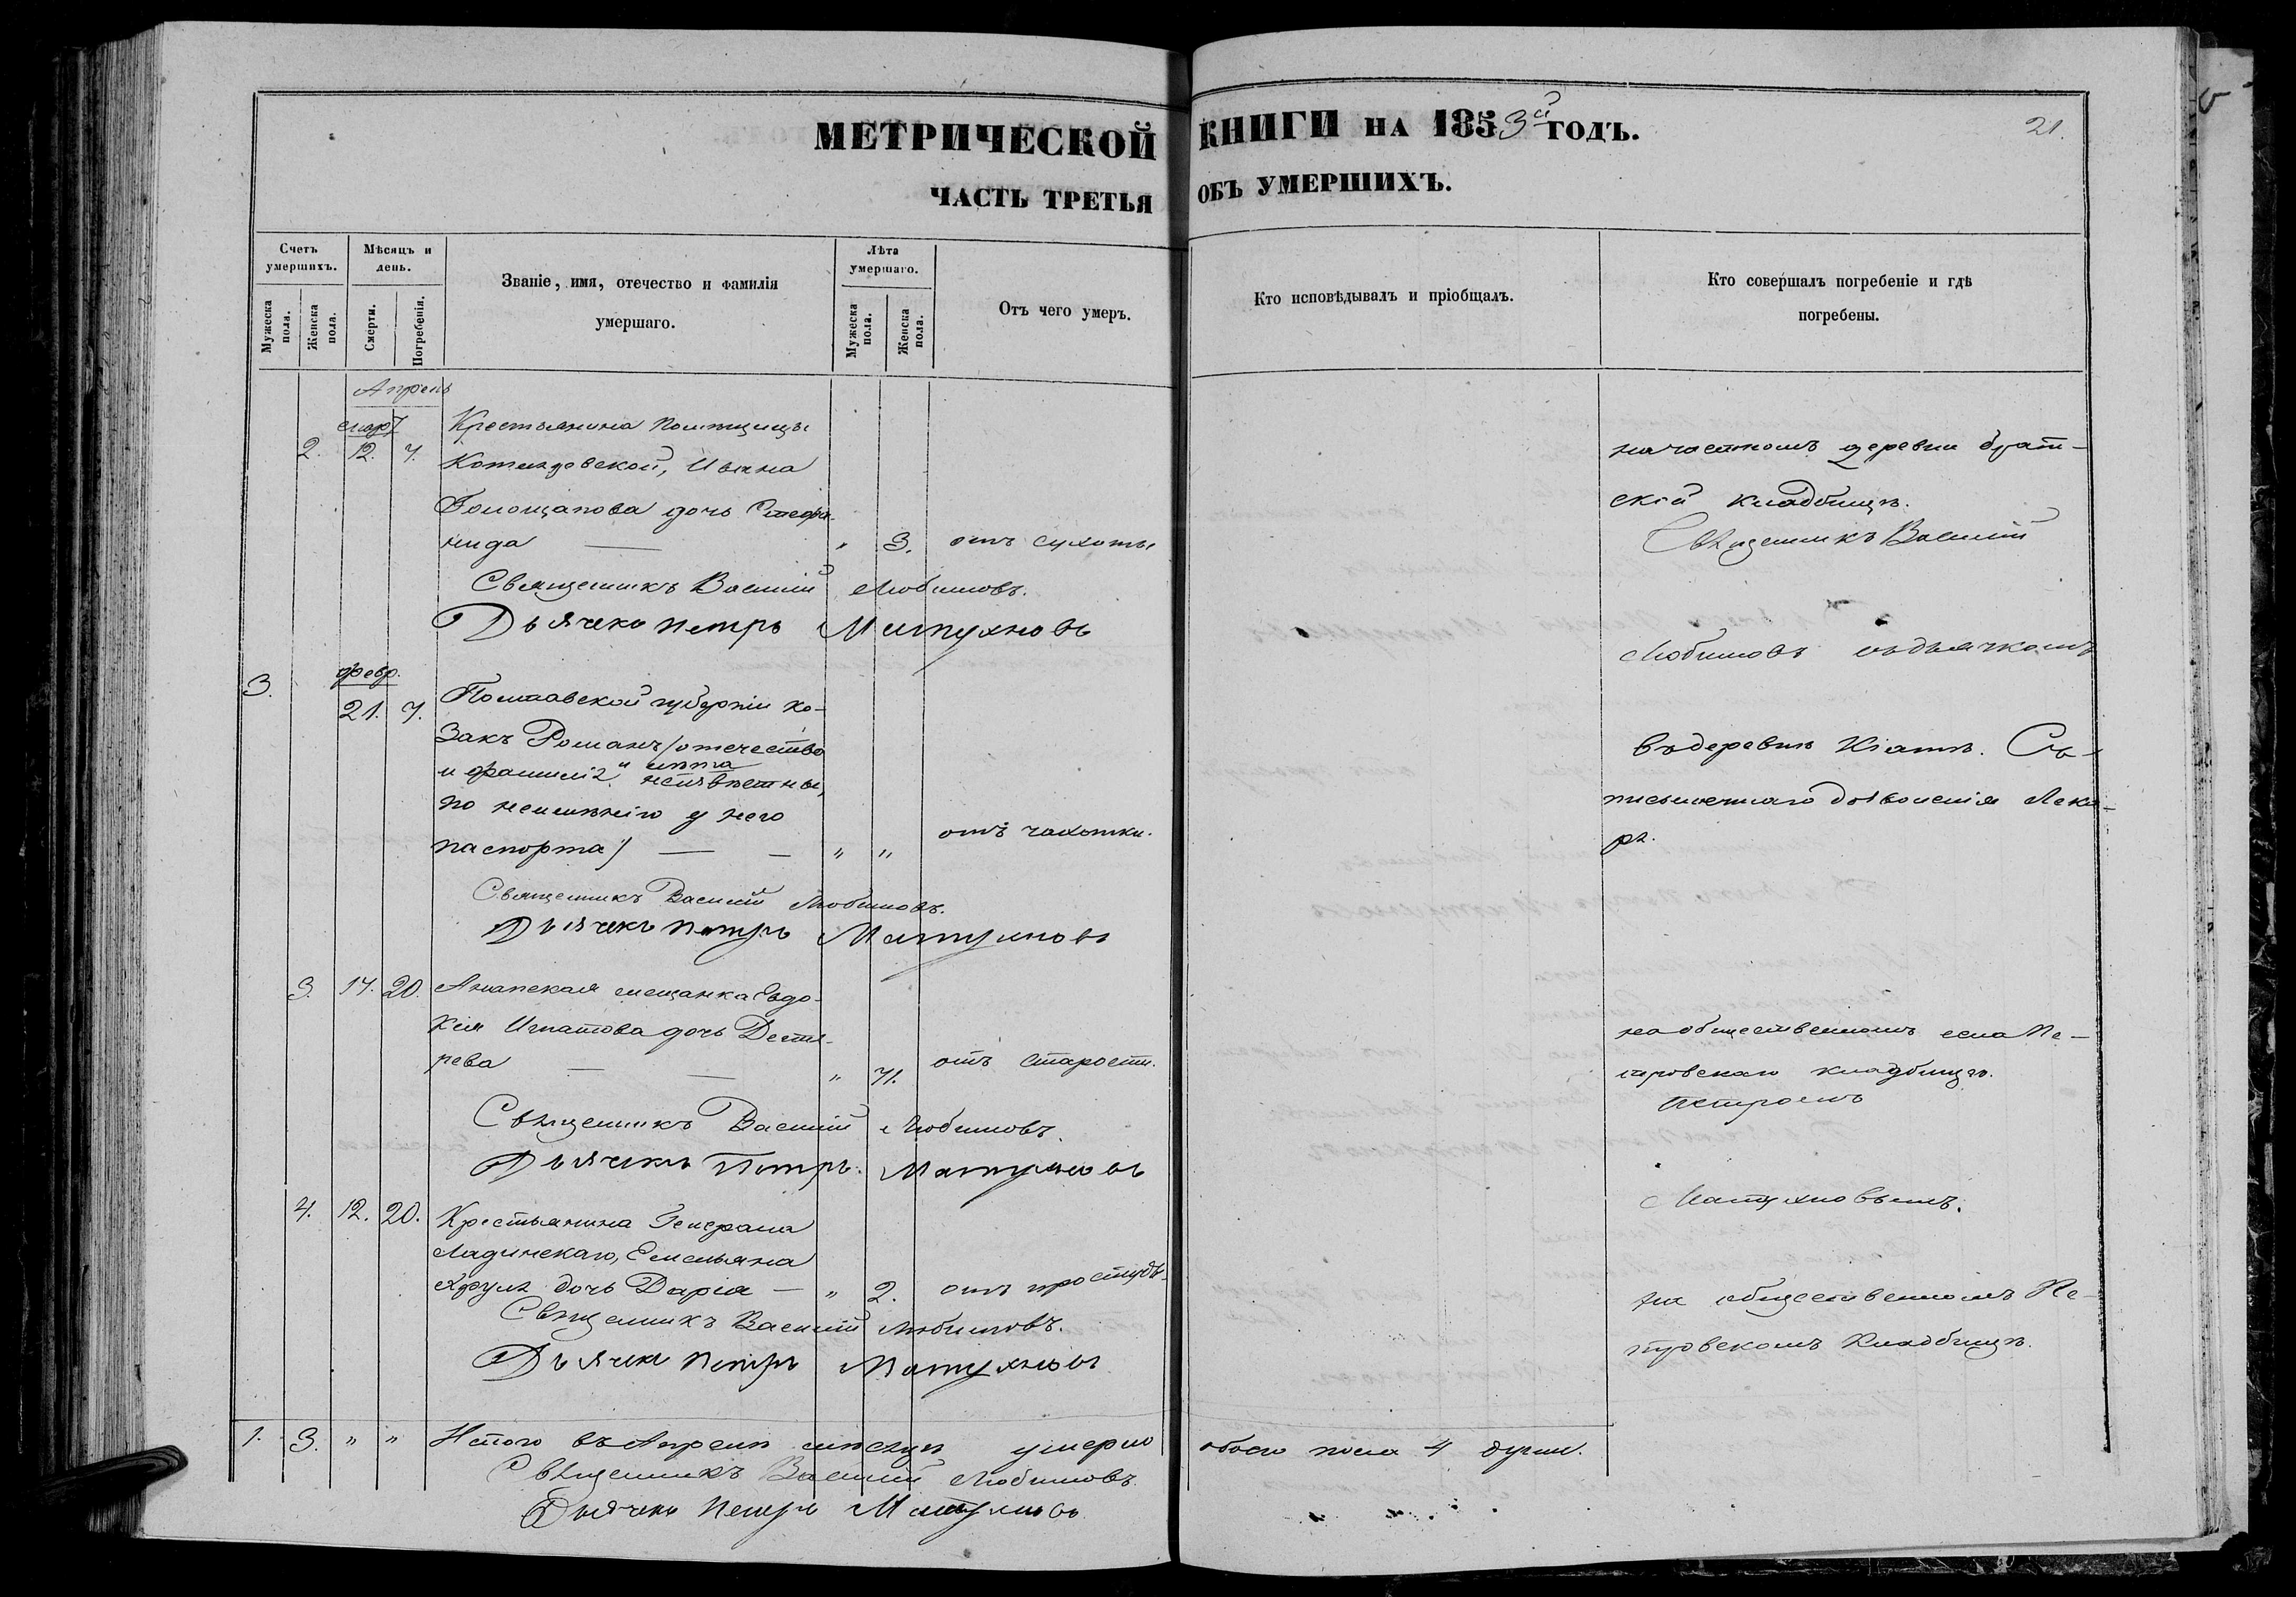 МЕТРИЧЕСКОЙ КНИГИ НА 1853й ГОДЪ.
21.
ЧАСТЬ ТРЕТЬЯ ОБЪ УМЕРШИХЪ.
Счетъ умершихъ.
Мужеска пола.
Женска пола.
Мѣсяцъ и день.
Смерти.
Погребенія.
Званіе, имя, отечество и фамилія
умершаго.
Лѣта умершаго.
Мужеска пола.
Женска пола.
Отъ чего умеръ.
Кто исповѣдывалъ и пріобщалъ.
Кто совершалъ погребеніе и гдѣ
погребены.
Апрель
март
2. 12. 7. Крестьянина Помѣщицы
Ивана
дочь Стефа-
нида — " 3. отъ сухоты
Священникъ Василій Любимовъ.
Дьячекъ Петръ Матухновъ
на частномъ деревни брат-
ской кладбищѣ.
Священникъ Василій
Любимовъ съ дьячкомъ
3. февр.
21. 7. Полтавской губерніи ко-
закъ Романъ /отечество
и фамилія и лѣта неизвѣстны,
по неимѣнію у него
паспорта/ — — " " отъ чахотки.
Священникъ Василій Любимовъ.
Дьячекъ Петръ Матухновъ
въ деревнѣ Кіатъ. Съ
письменнаго дозволенія Лека-
ря.
3. 17. 20. Анапская мещанка Евдо-
кія Игнатова дочь Дегтя-
рева — — " 71. отъ старости.
Священникъ Василій Любимовъ.
Дьячекъ Петръ Матухновъ
на общественномъ села Пе-
тровскаго кладбищѣ.
Петромъ
Матухновымъ.
4. 12. 20. Крестьянина Генерала
Ладинскаго, Емельяна
дочь Дарія — " 2. отъ простуды
Священникъ Василій Любимовъ.
Дьячекъ Петръ Матухновъ
на общественномъ Пе-
тровскомъ Кладбищѣ.
1. 3. " " Итого въ Апрелѣ месяцѣ умерло обоего пола 4 души.
Священникъ Василій Любимовъ
Дьячекъ Петръ Матухновъ